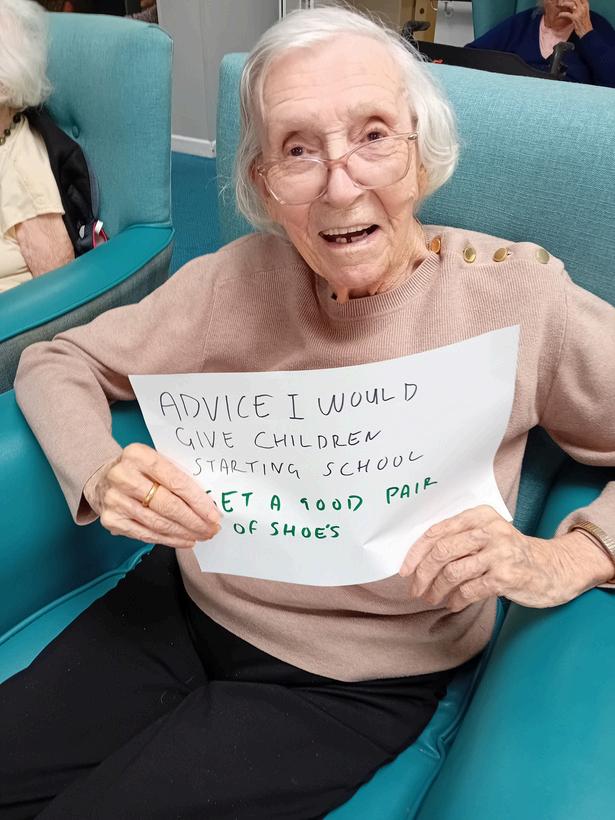 ADVICE I WOULD
GIVE CHILDREN
STARTING SCHOOL
GET A GOOD PAIR
OF SHOE'S